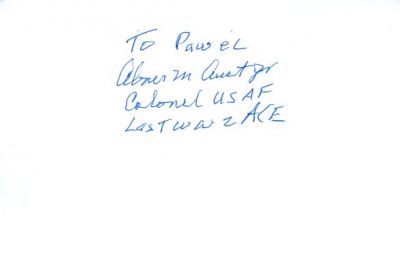 To Pawel
Abner M Aust Jr
Colonel USAF
Last WW 2 ACE